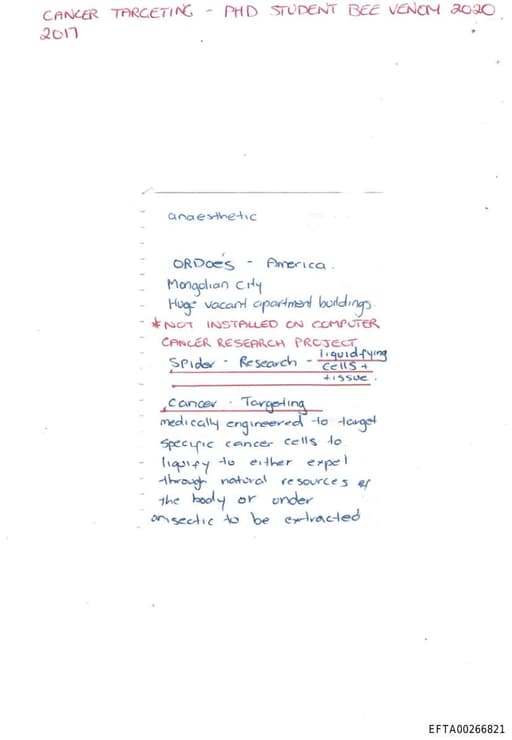 CANCER TARGETING - PHD STUDENT BEE VENOM 2020
2017
anaesthetic
ORDOES - America.
Mongolian City
Huge vacant apartment buildings
*NOT INSTALLED ON COMPUTER
CANCER RESEARCH PROJECT
Spider - Research - liquid-fying
cells +
tissue.
Cancer · Targeting
medically engineered to target
specific cancer cells to
liquify to either expel
through natural resources of
the body or under
to be extracted
EFTA00266821